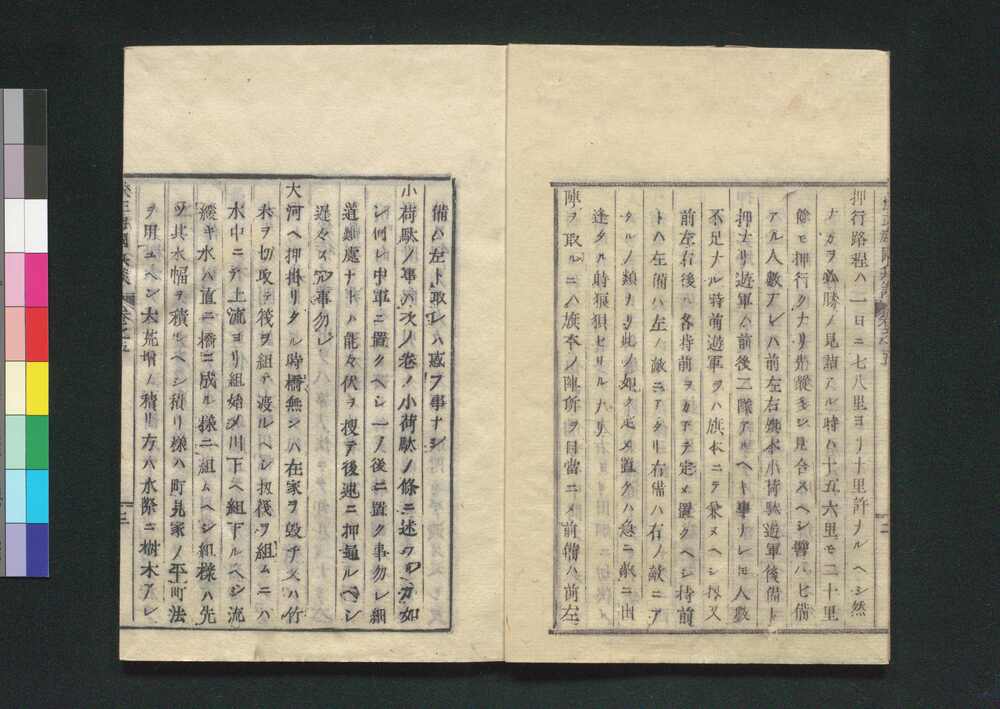 押行路程ハ一日ニ七八里ヨリ十里許ナルヘシ然
ナカラ必勝ノ見詰アル時ハ十五六里モ二十里
餘モ押行クナリ先蹤多シ見合スヘシ譬ハヒ備
アル人數アレハ前左右旗本小荷駄遊軍後備ト
押ナリ遊軍ハ前後二隊アルヘキ事ナレ𪜈人數
不足ナル時前遊軍ヲハ旗本ニテ兼ヌヘシ扨又
前左右後ハ各持前ヲカテテ定メ置クヘシ持前
トハ左備ハ左ノ敵ニアタリ右備ハ右ノ敵ニア
タルノ類ナリ此ノ如ク定メ置クハ急ニ敵ニ出
逢タル時狼狽セサル
陣ヲ取ルニハ旗本ノ陣所ヲ目當ニメ前備ハ前左
備ハ左ト取レハ惑フ事ナシ
小荷駄ノ事ハ次ノ巻ノ小荷駄ノ條ニ述ツ如
シ何レ中軍ニ置クヘシ一ノ後ニ置ク事勿レ細
道難處ナトハ能々伏ヲ搜テ後速ニ押通ルヘシ
遅々メ事勿レ
大河ヘ押掛リタル時橋無シハ在家ヲ毀チ又ハ竹
木ヲ切取テ筏ヲ組テ渡ルヘシ扨筏ヲ組ムニハ
水中ニテ上流ヨリ組始メ川下ヘ組下ルヘシ流
緩キ水ハ直ニ橋ニ成ル樣ニ組ムヘシ組樣ハ先
ツ其水幅ヲ積ルヘシ積リ樣ハ町見家ノ平町法
ヲ用ユヘシ大荒増ノ積リ方ハ水際ニ樹木アレ